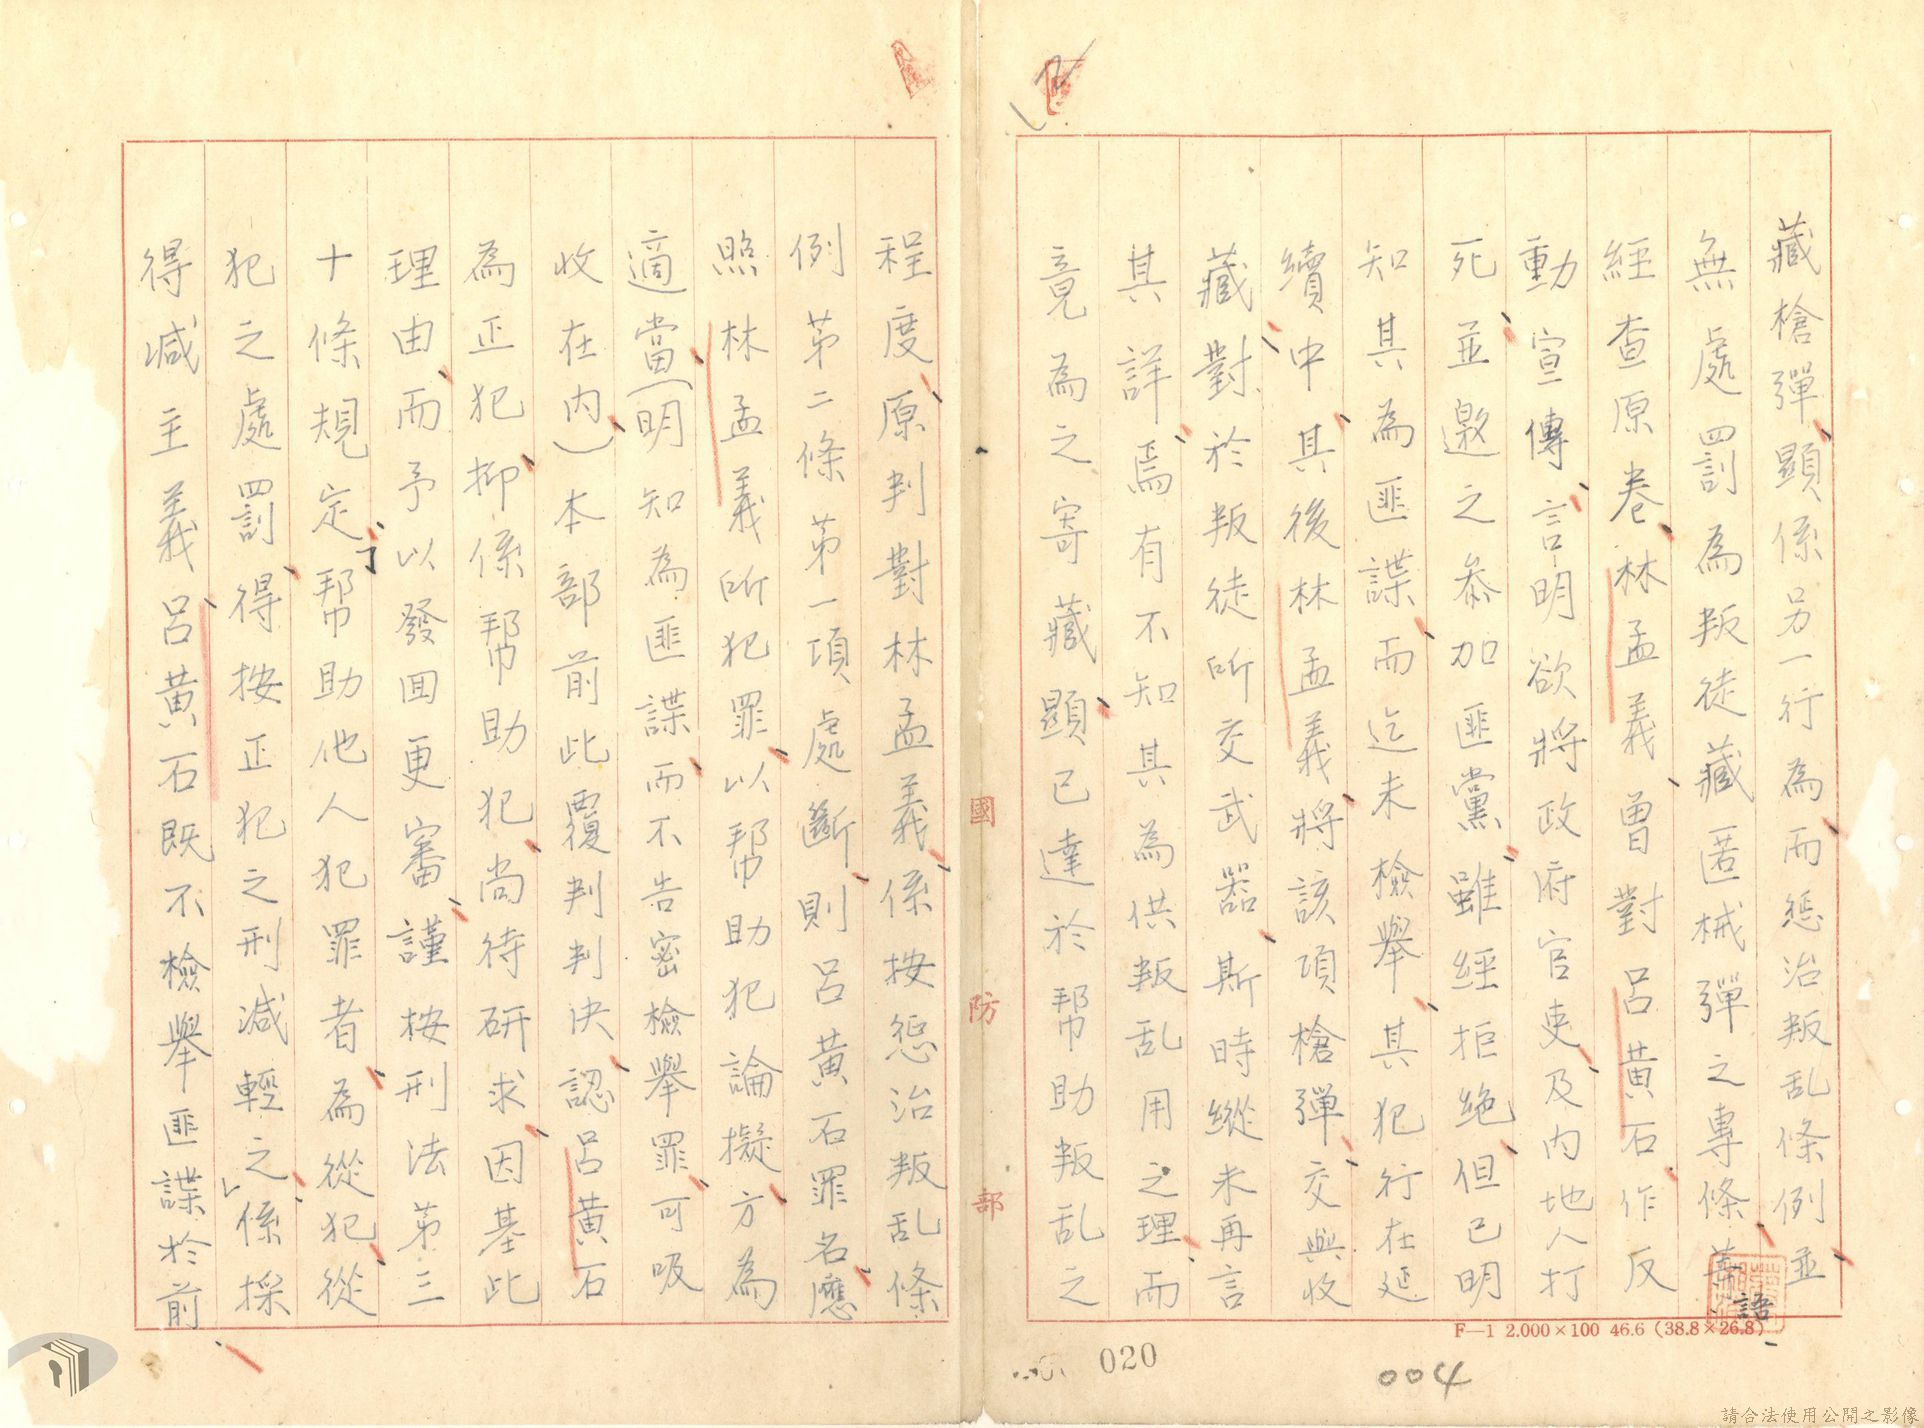 藏槍彈顯係另一行為而懲治叛乱條例並
無處罰為叛徒藏匿械彈之專條等語
經查原卷林孟義曾對呂黃石作反
動宣傳言明欲將政府官吏及内地人打
死並邀之參加匪黨雖經拒絕但已明
知其為匪諜而迄未檢舉其犯行在延
續中其後林孟義將該項槍彈交與收
藏對於叛徒所交武器斯時縱未再言
其詳焉有不知其為供叛乱用之理而
竟為之寄藏顯已達於帮助叛乱之
程度原判對林孟義係按懲治叛乱條
例第二條第一項處斷則呂黃石罪名應
照林孟義所犯罪以帮助犯論擬方為
適當(明知為匪諜而不告密檢舉罪可吸
收在内)本部前此覆判判決認呂黃石
為正犯抑係帮助犯尚待研求因基此
理由而予以發回更審謹按刑法第三
十條規定「帮助他人犯罪者為從犯從
犯之處罰得按正犯之刑減輕之」係採
得減主義呂黃石既不檢舉匪諜於前
國防部
F—1 2.000×100 46.6 (38.8×26.8)
020
0004
請合法使用公開之影像